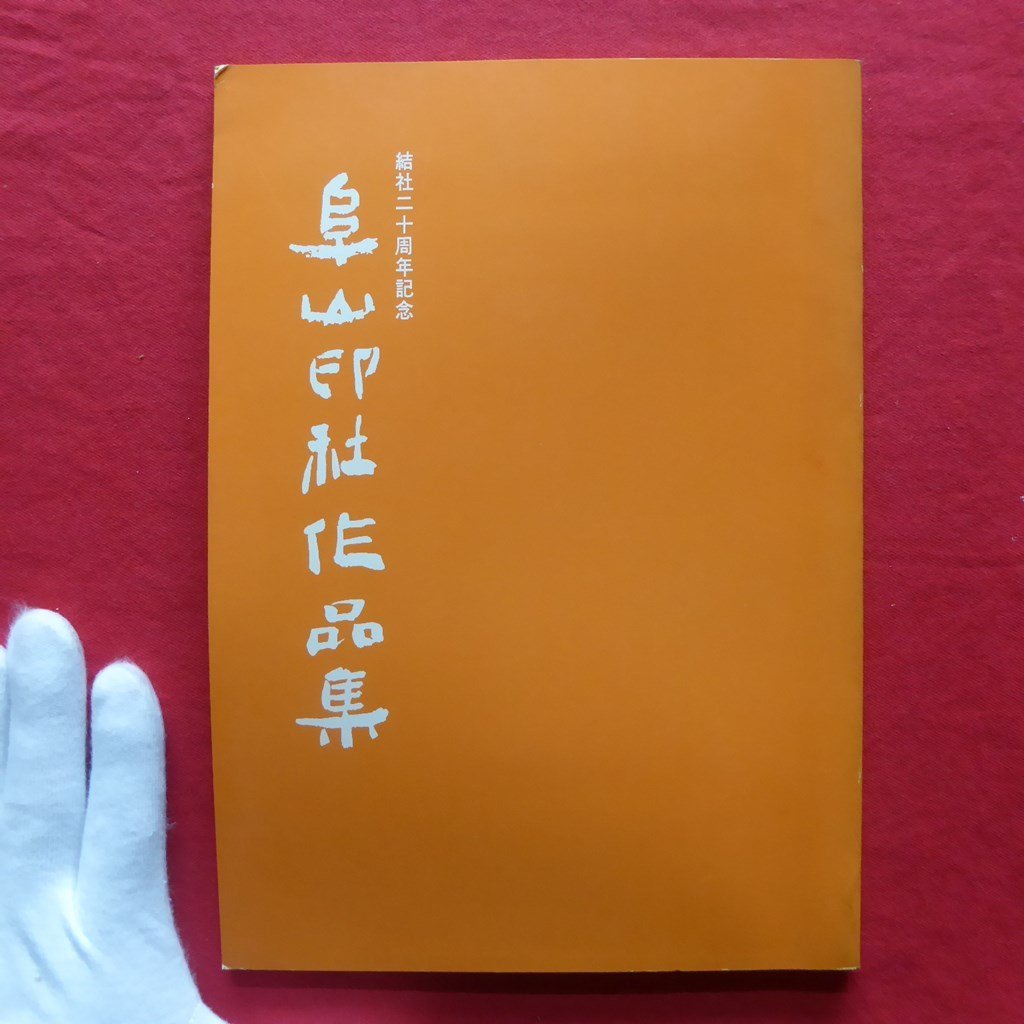 結社二十周年記念
阜山印社作品集